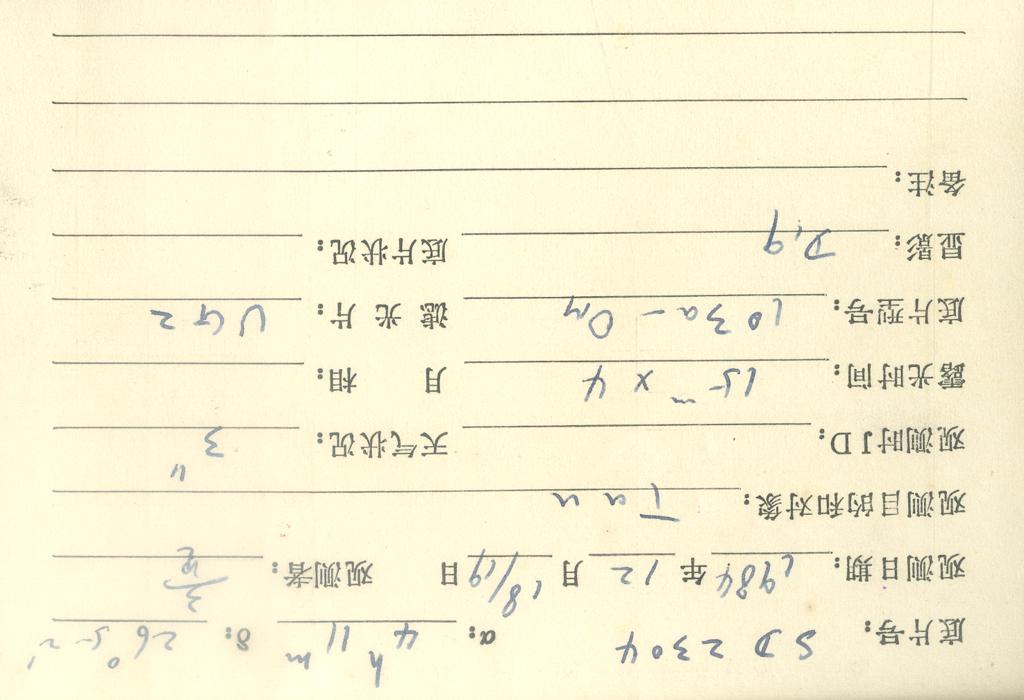 底片号: SD2304 α: 4h 11m δ: 26°52′
观测日期: 1984年12月18/19日 观测者:
观测目的和对象: Tau
观测时JD: 天气状况: 3″
露光时间: 15m×4 月 相:
底片型号: 103a-O, 4 滤 光 片: UG2
显影: D19 底片状况:
备注: